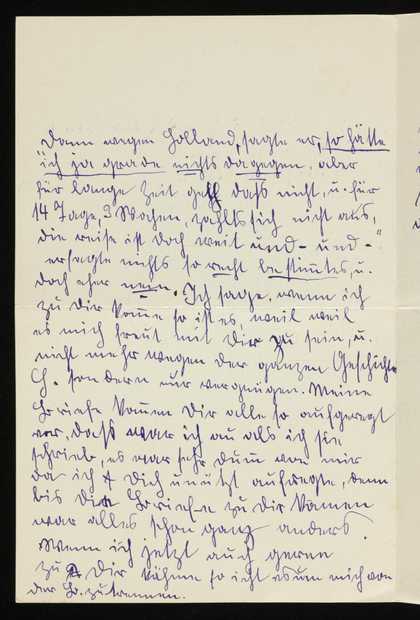 Dann wegen Holland, sagte er, so hätte
"ich ja grade nichts dagegen, aber
für lange Zeit geht dass nicht, u. für
14 Tage, 3 Wochen, zahlts sich nicht aus,
die reise ist doch weit und - und - "
er sagte nichts so recht bestimtes, u.
doch eher nein. Ich sage, wenn ich
zu Dir kome so ist es, weil weil
es mich freut mit Dir zu sein, u.
nicht mehr wegen der ganzen Geschichte
Ch. sondern nur vergnügen. Meine
Briefe komen Dir alle so aufgeregt
vor, dass war ich au als ich sie
schrieb, es war sehr dum von mir
da ich Dich unütz aufrege, denn
bis die Briefe zu Dir kamen
war alles schon ganz anders.
Wenn ich jetzt auch gerne
zu Dir kähme so ist es um mich von
der B. zu trennen.